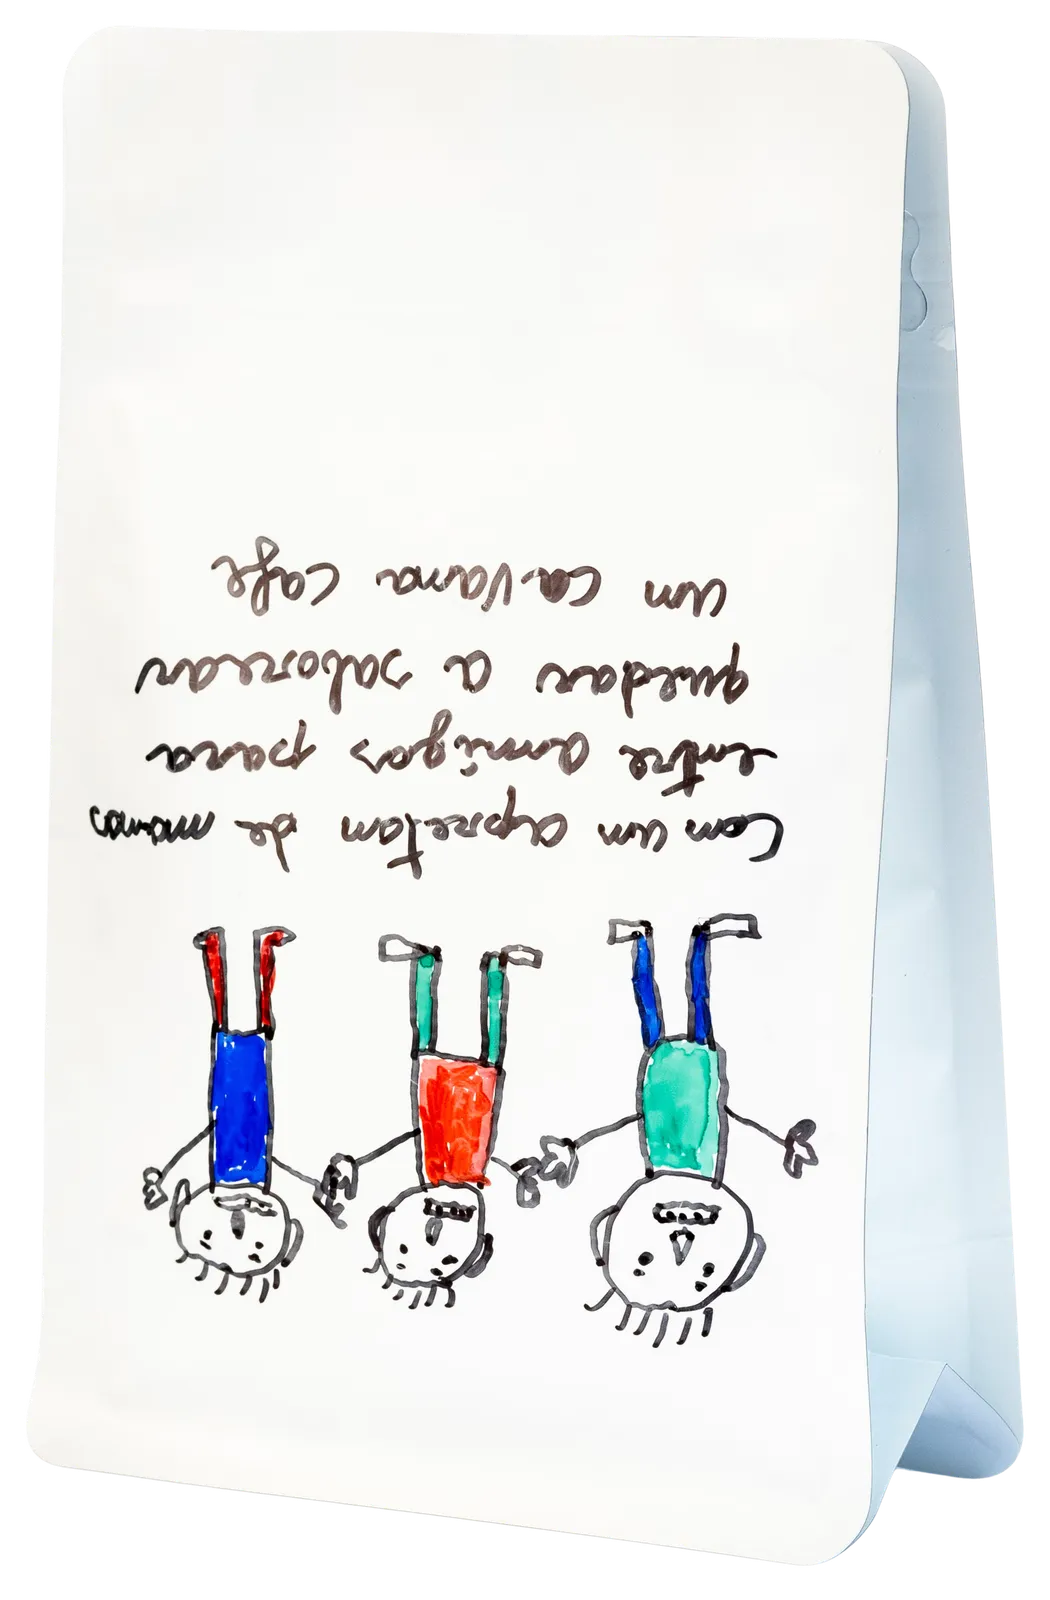 Con un apreton de manos
entre amigos para
quedar a saborear
un ca.Vana cafe